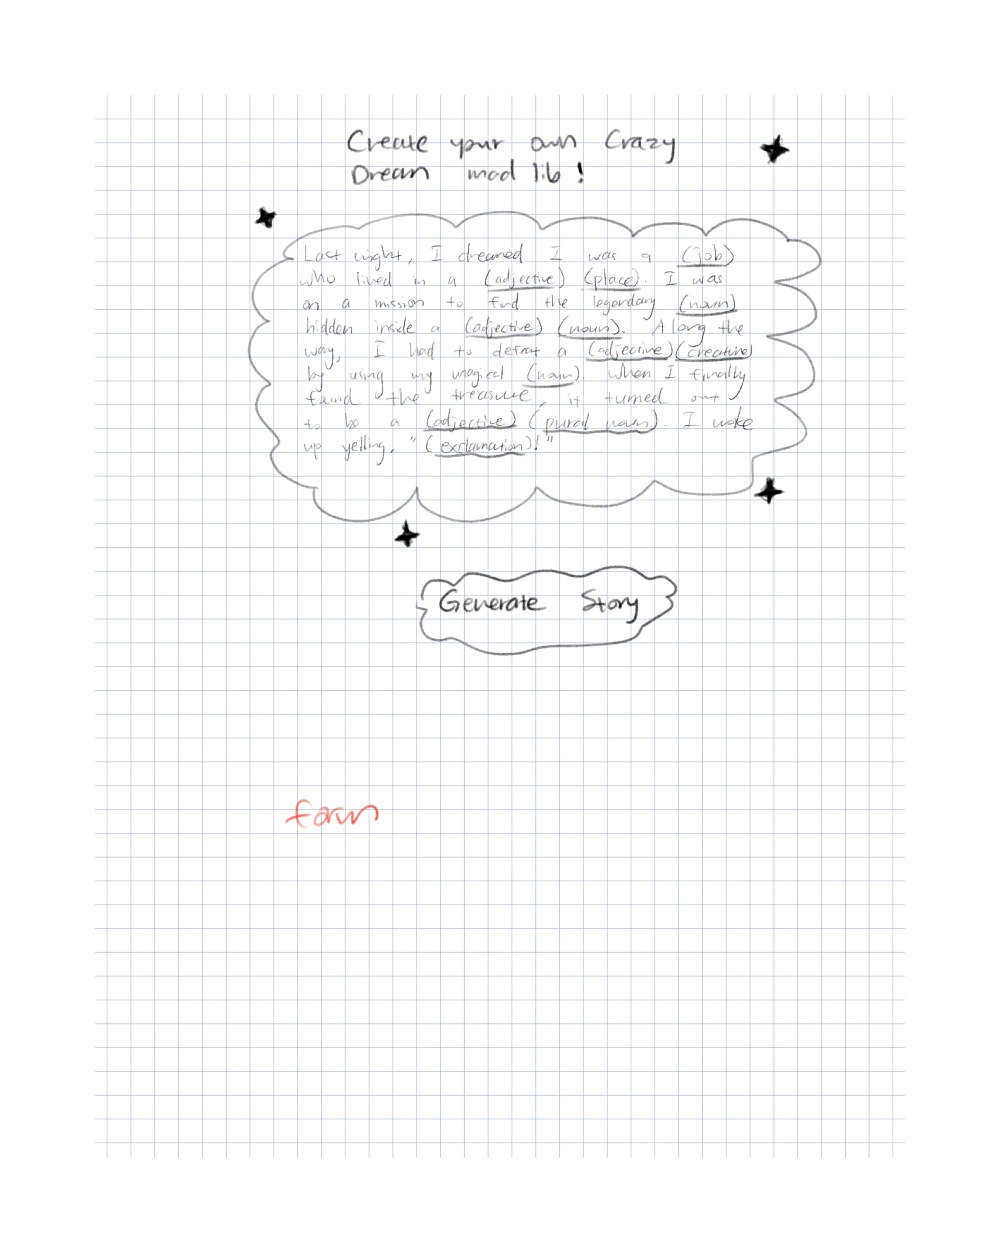 Create your own Crazy
Dream mad lib!
Last night, I dreamed I was a (job)
who lived in a (adjective) (place). I was
on a mission to find the legendary (noun)
hidden inside a (adjective) (noun). Along the
way, I had to defeat a (adjective) (creative)
by using my magical (noun). When I finally
found the treasure, it turned out
to be a (adjective) (pural noun). I woke
up yelling, "(exclamation)!"
Generate Story